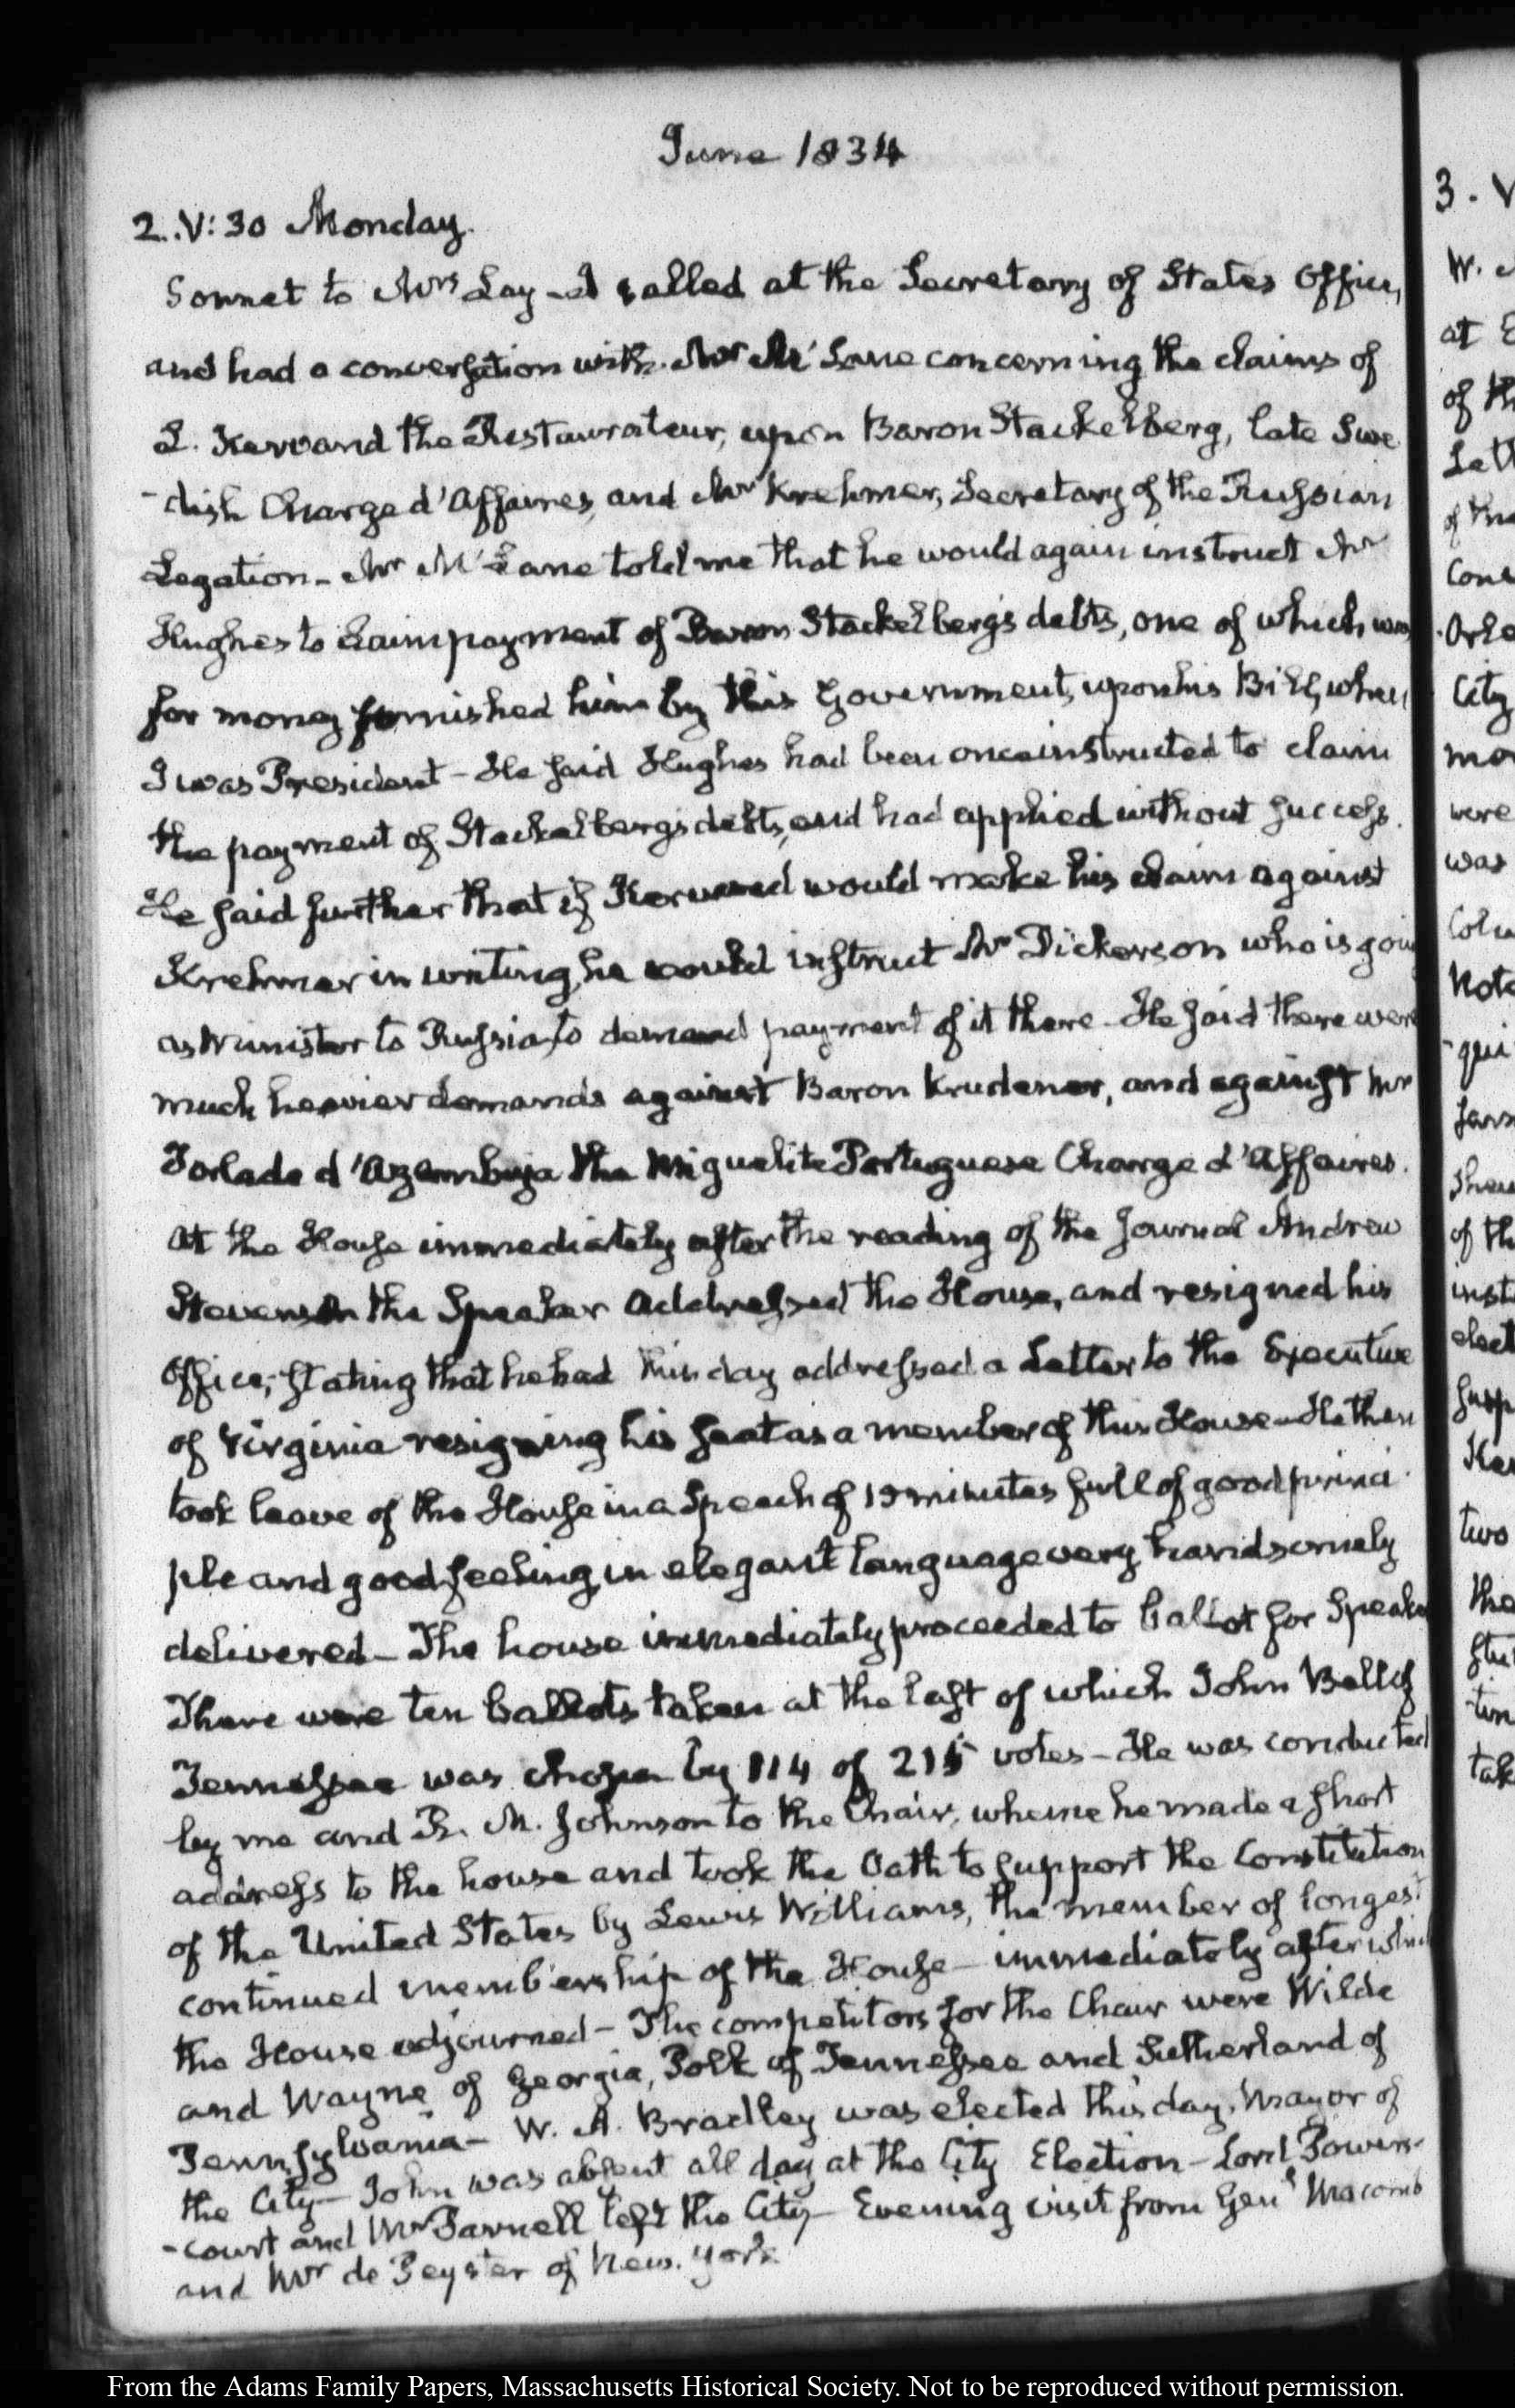 June 1834
2. V: 30 Monday.
Sonnet to Mrs Lay – I called at the Secretary of States Office,
and had a conversation with Mr McLane concerning the claims of
L. Kervand the Restaurateur, upon Baron Stackelberg, late Swe
-dish Charge d'Affaires, and Mr Krehmer, Secretary of the Russian
Legation – Mr McLane told me that he would again instruct Mr
Hughes to claim payment of Baron Stackelberg's debts, one of which was
for money furnished him by this Government, upon his Bill, when
I was President – He said Hughes had been once instructed to claim
the payment of Stackelbergs debts, and had applied without success.
He said further that if Kervand would make his claim against
Krehmer in writing, he would instruct Mr Dickerson who is going
as Minister to Russia, to demand payment of it there – He said there were
much heavier demands against Baron Krudener, and against Mr
Torlade d'Azambuja the Miguelite Portuguese Charge d'Affaires.
At the House immediately after the reading of the Journal Andrew
Stevenson the Speaker addressed the House, and resigned his
Office; stating that he had this day addressed a Letter to the Executive
of Virginia resigning his seat as a member of this House – He then
took leave of the House in a Speech of 15 minutes full of good princi
ple and good feeling, in elegant language very handsomely
delivered – The house immediately proceeded to ballot for Speaker
There were ten ballots taken at the last of which John Bell of
Tennessee was chosen by 114 of 215 votes – He was conducted
by me and R. M. Johnson to the Chair, whence he made a short
address to the house and took the Oath to support the Constitution
of the United States by Lewis Williams, the member of longest
continued membership of the House – immediately after which
the House adjourned – The competitors for the Chair were Wilde
and Wayne of Georgia, Polk of Tennessee and Sutherland of
Pennsylvania – W. A. Bradley was elected this day, Mayor of
the City – John was absent all day at the City Election – Lord Powers-
-court and Mr Parnell left the City – Evening visit from Genl Macomb
and Mr de Peyster of New. York.
3. V
W.
at
of th
Lett
of the
Cons
City
mo
were
was
Colu
Note
-qui
of th
inst
elect
two
the
tak
From the Adams Family Papers, Massachusetts Historical Society. Not to be reproduced without permission.